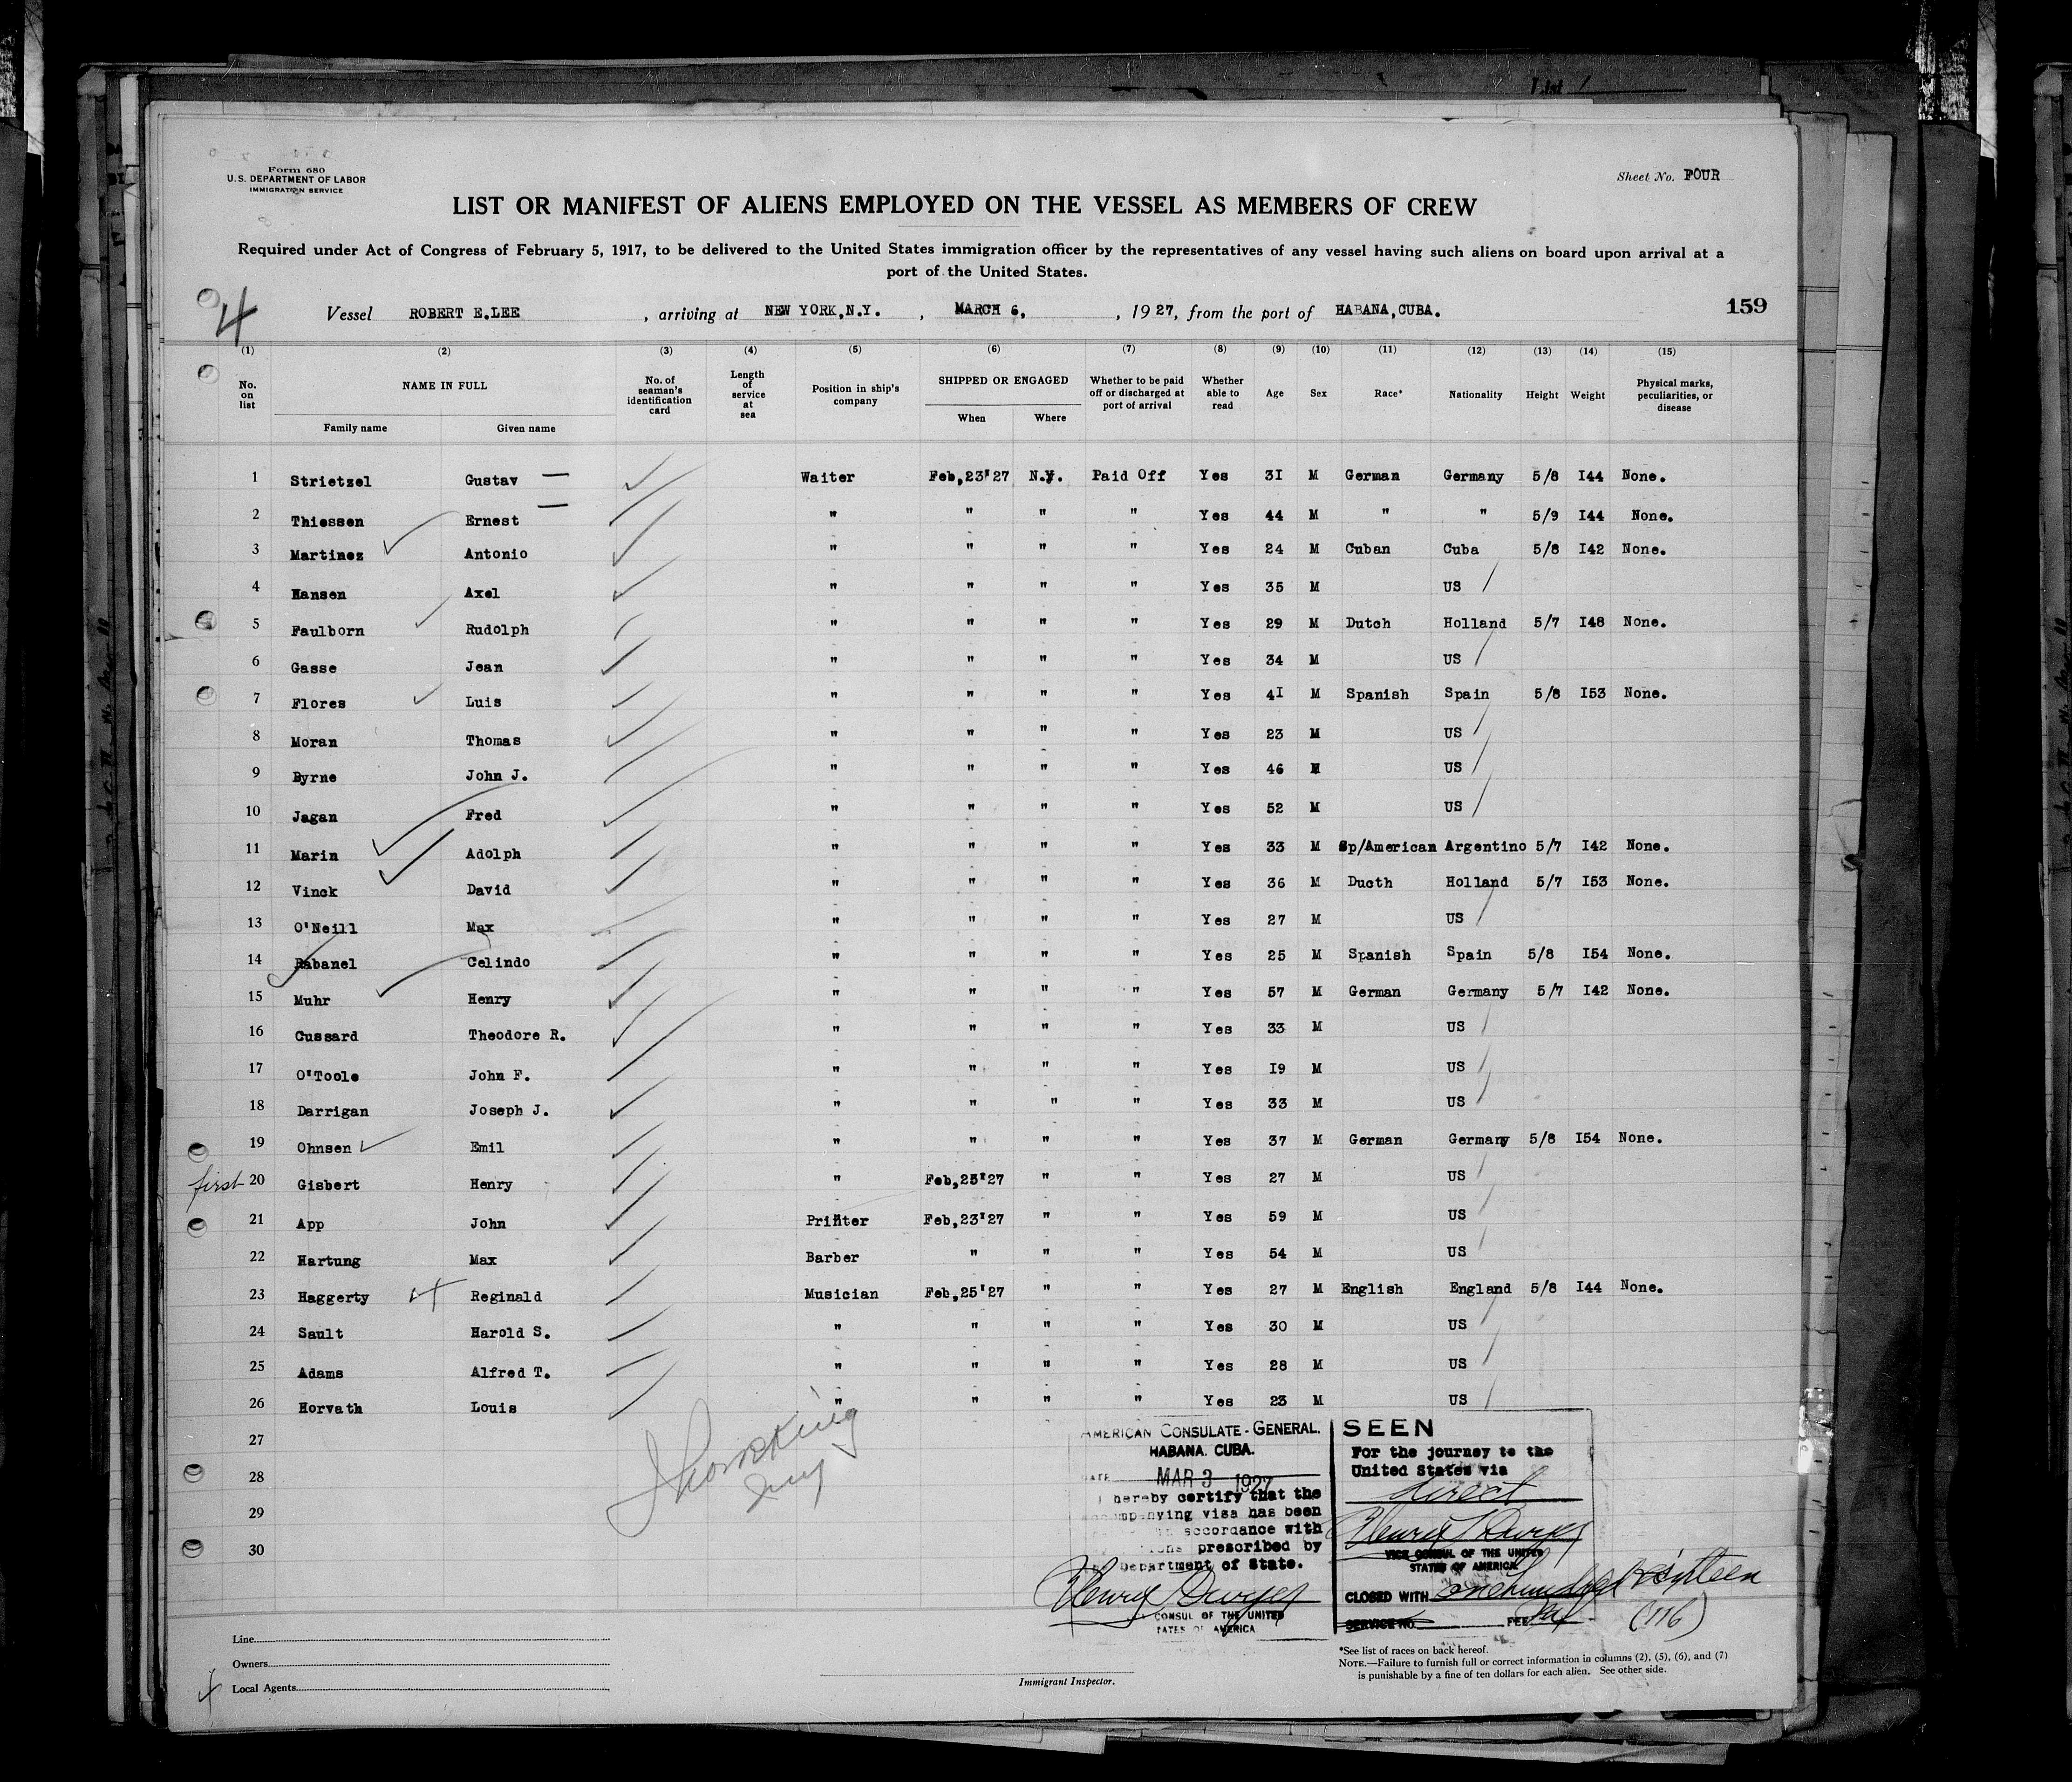 List /
Form 680
U.S. DEPARTMENT OF LABOR
IMMIGRATION SERVICE
Sheet No. FOUR
LIST OR MANIFEST OF ALIENS EMPLOYED ON THE VESSEL AS MEMBERS OF CREW
Required under Act of Congress of February 5, 1917, to be delivered to the United States immigration officer by the representatives of any vessel having such aliens on board upon arrival at a
port of the United States.
4
Vessel ROBERT E.LEE , arriving at NEW YORK,N.Y. , MARCH 6, , 1927, from the port of HABANA,CUBA.
159
(1) (2) (3) (4) (5) (6) (7) (8) (9) (10) (11) (12) (13) (14) (15)
No. on list NAME IN FULL Family name Given name No. of seaman's identification card Length of service at sea Position in ship's company SHIPPED OR ENGAGED When Where Whether to be paid off or discharged at port of arrival Whether able to read Age Sex Race* Nationality Height Weight Physical marks, peculiarities, or disease
1 Strietzel Gustav — Waiter Feb,23'27 N.Y. Paid Off Yes 3I M German Germany 5/8 I44 None.
2 Thiessen Ernest — " " " " Yes 44 M " " 5/9 I44 None.
3 Martinez Antonio " " " " Yes 24 M Cuban Cuba 5/8 I42 None.
4 Hansen Axel " " " " Yes 35 M US /
5 Faulborn Rudolph " " " " Yes 29 M Dutch Holland 5/7 I48 None.
6 Gasse Jean " " " " Yes 34 M US /
7 Flores Luis " " " " Yes 4I M Spanish Spain 5/8 I53 None.
8 Moran Thomas " " " " Yes 23 M US /
9 Byrne John J. " " " " Yes 46 M US /
10 Jagan Fred " " " " Yes 52 M US /
11 Marin Adolph " " " " Yes 33 M Sp/American Argentino 5/7 I42 None.
12 Vinck David " " " " Yes 36 M Ducth Holland 5/7 I53 None.
13 O'Neill Max " " " " Yes 27 M US /
14 Rabanel Celindo " " " " Yes 25 M Spanish Spain 5/8 I54 None.
15 Muhr Henry " " " " Yes 57 M German Germany 5/7 I42 None.
16 Cussard Theodore R. " " " " Yes 33 M US /
17 O'Toole John F. " " " " Yes I9 M US /
18 Darrigan Joseph J. " " " " Yes 33 M US /
19 Ohnsen Emil " " " " Yes 37 M German Germany 5/8 I54 None.
first 20 Gisbert Henry " Feb,25'27 " " Yes 27 M US /
21 App John Printer Feb,23'27 " " Yes 59 M US /
22 Hartung Max Barber " " " Yes 54 M US /
23 Haggerty Reginald Musician Feb,25'27 " " Yes 27 M English England 5/8 I44 None.
24 Sault Harold S. " " " " Yes 30 M US /
25 Adams Alfred T. " " " " Yes 28 M US /
26 Horvath Louis " " " " Yes 23 M US /
27
28
29
30
AMERICAN CONSULATE-GENERAL.
HABANA. CUBA.
DATE MAR 3 1927
I hereby certify that the
accompanying visa has been
in accordance with
prescribed by
Department of State.
CONSUL OF THE UNITED
STATES OF AMERICA
SEEN
For the journey to the
United States via
direct
VICE CONSUL OF THE UNITED
STATES OF AMERICA
CLOSED WITH one hundred & sixteen
SERVICE NO. FEE (116)
Line
Owners
Local Agents
Immigrant Inspector.
*See list of races on back hereof.
NOTE.—Failure to furnish full or correct information in columns (2), (5), (6), and (7)
is punishable by a fine of ten dollars for each alien. See other side.